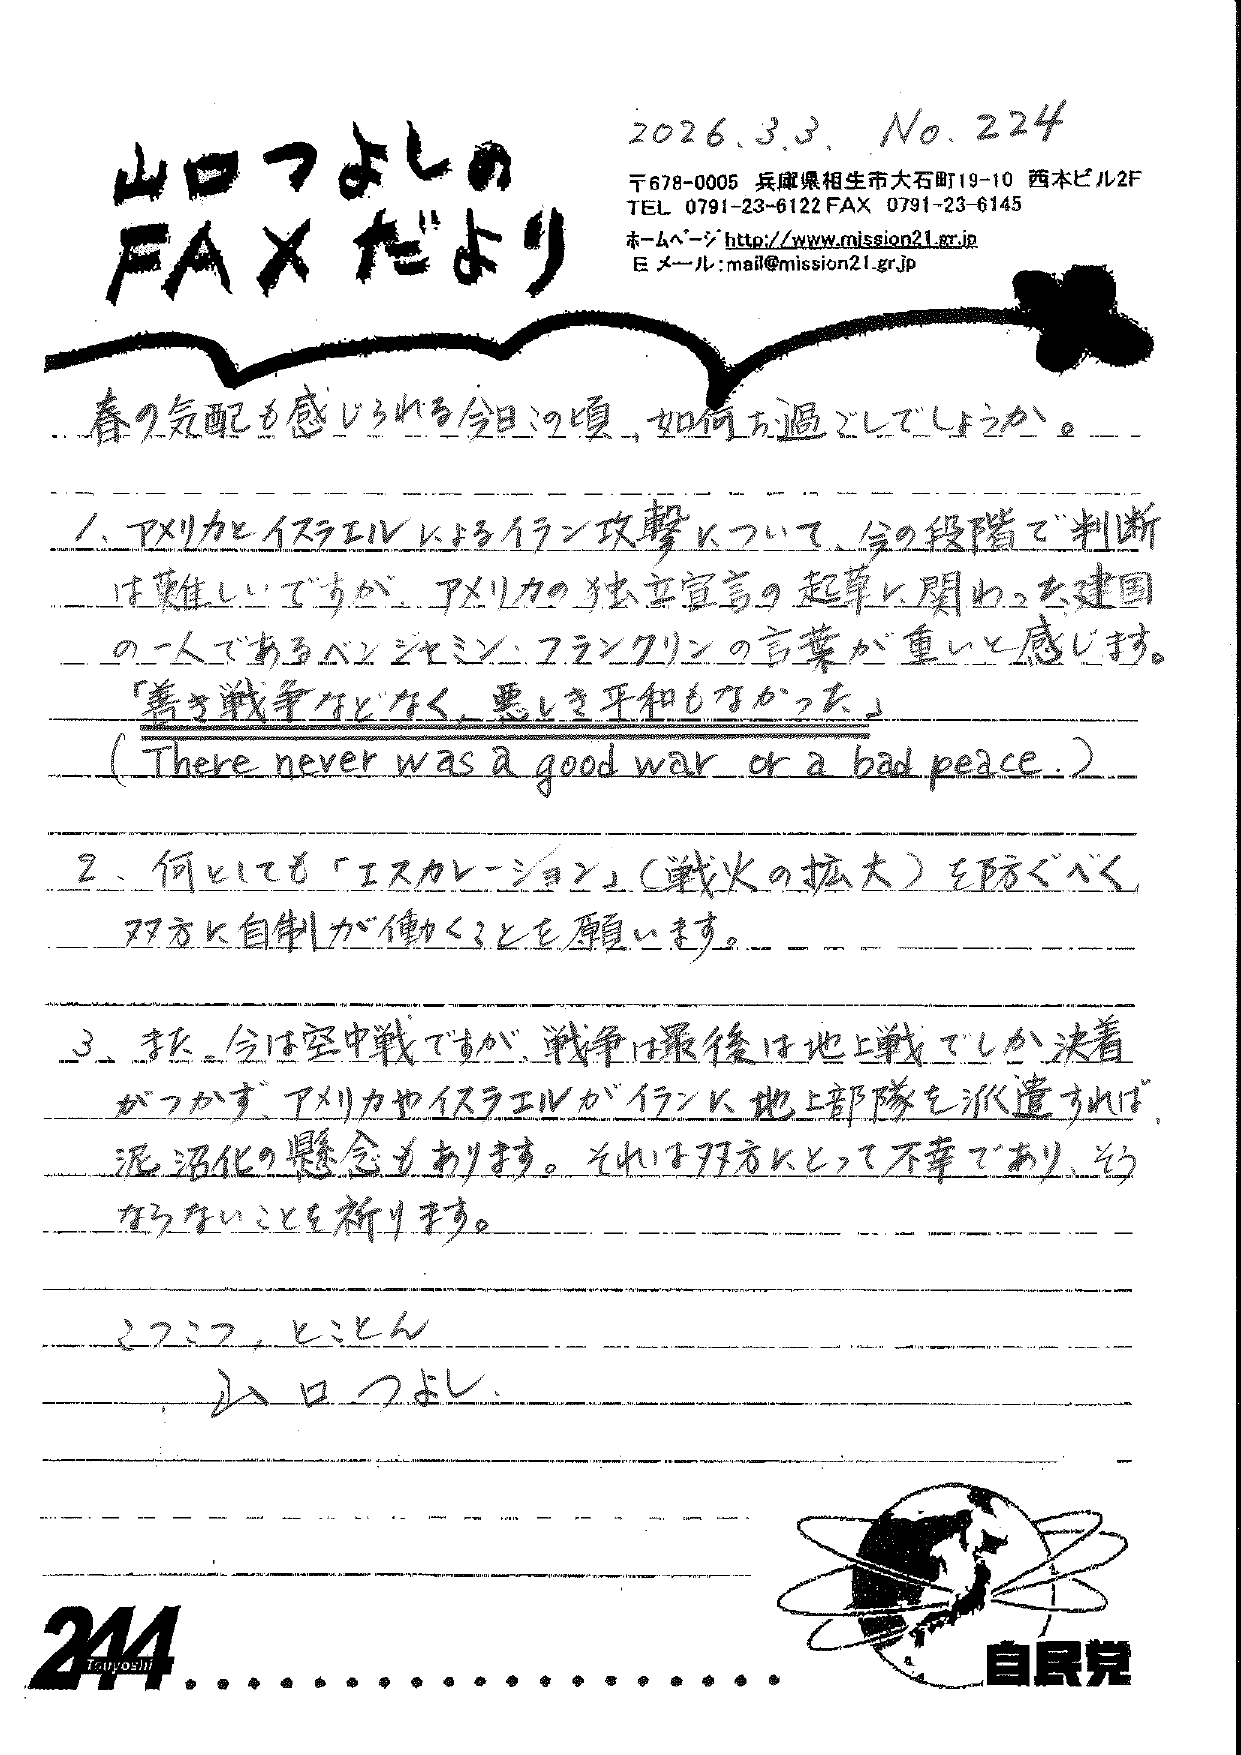 2026.3.3. No.224
山口つよしの
FAXだより
〒678-0005 兵庫県相生市大石町19-10 西本ビル2F
TEL 0791-23-6122 FAX 0791-23-6145
ホームページ http://www.mission21.gr.jp
Eメール:mail@mission21.gr.jp
春の気配も感じられる今日この頃、如何お過ごしでしょうか。
1、アメリカとイスラエルによるイラン攻撃について、今の段階で判断
は難しいですが、アメリカの独立宣言の起草に関わった建国
の一人であるベンジャミン・フランクリンの言葉が重いと感じます。
「善き戦争などなく、悪しき平和もなかった」
(There never was a good war or a bad peace.)
2、何としても「エスカレーション」(戦火の拡大)を防ぐべく、
双方に自制が働くことを願います。
3、また、今は空中戦ですが、戦争は最後は地上戦でしか決着
がつかず、アメリカやイスラエルがイランに地上部隊を派遣すれば、
泥沼化の懸念もあります。それは双方にとって不幸であり、そう
ならないことを祈ります。
こつこつ、とことん
山口つよし.
244
Tsuyoshi
自民党